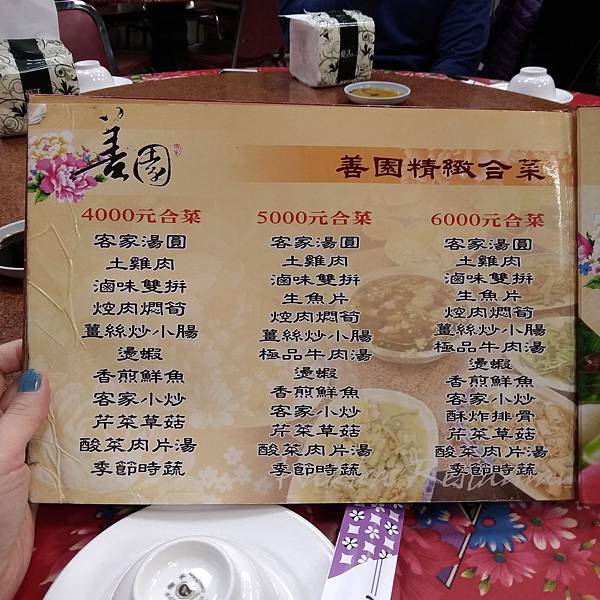 善園
善園精緻合菜
4000元合菜
客家湯圓
土雞肉
滷味雙拼
焢肉燜筍
薑絲炒小腸
燙蝦
香煎鮮魚
客家小炒
芹菜草菇
酸菜肉片湯
季節時蔬
5000元合菜
客家湯圓
土雞肉
滷味雙拼
生魚片
焢肉燜筍
薑絲炒小腸
極品牛肉湯
燙蝦
香煎鮮魚
客家小炒
芹菜草菇
酸菜肉片湯
季節時蔬
6000元合菜
客家湯圓
土雞肉
滷味雙拼
生魚片
焢肉燜筍
薑絲炒小腸
極品牛肉湯
燙蝦
香煎鮮魚
客家小炒
酥炸排骨
芹菜草菇
酸菜肉片湯
季節時蔬